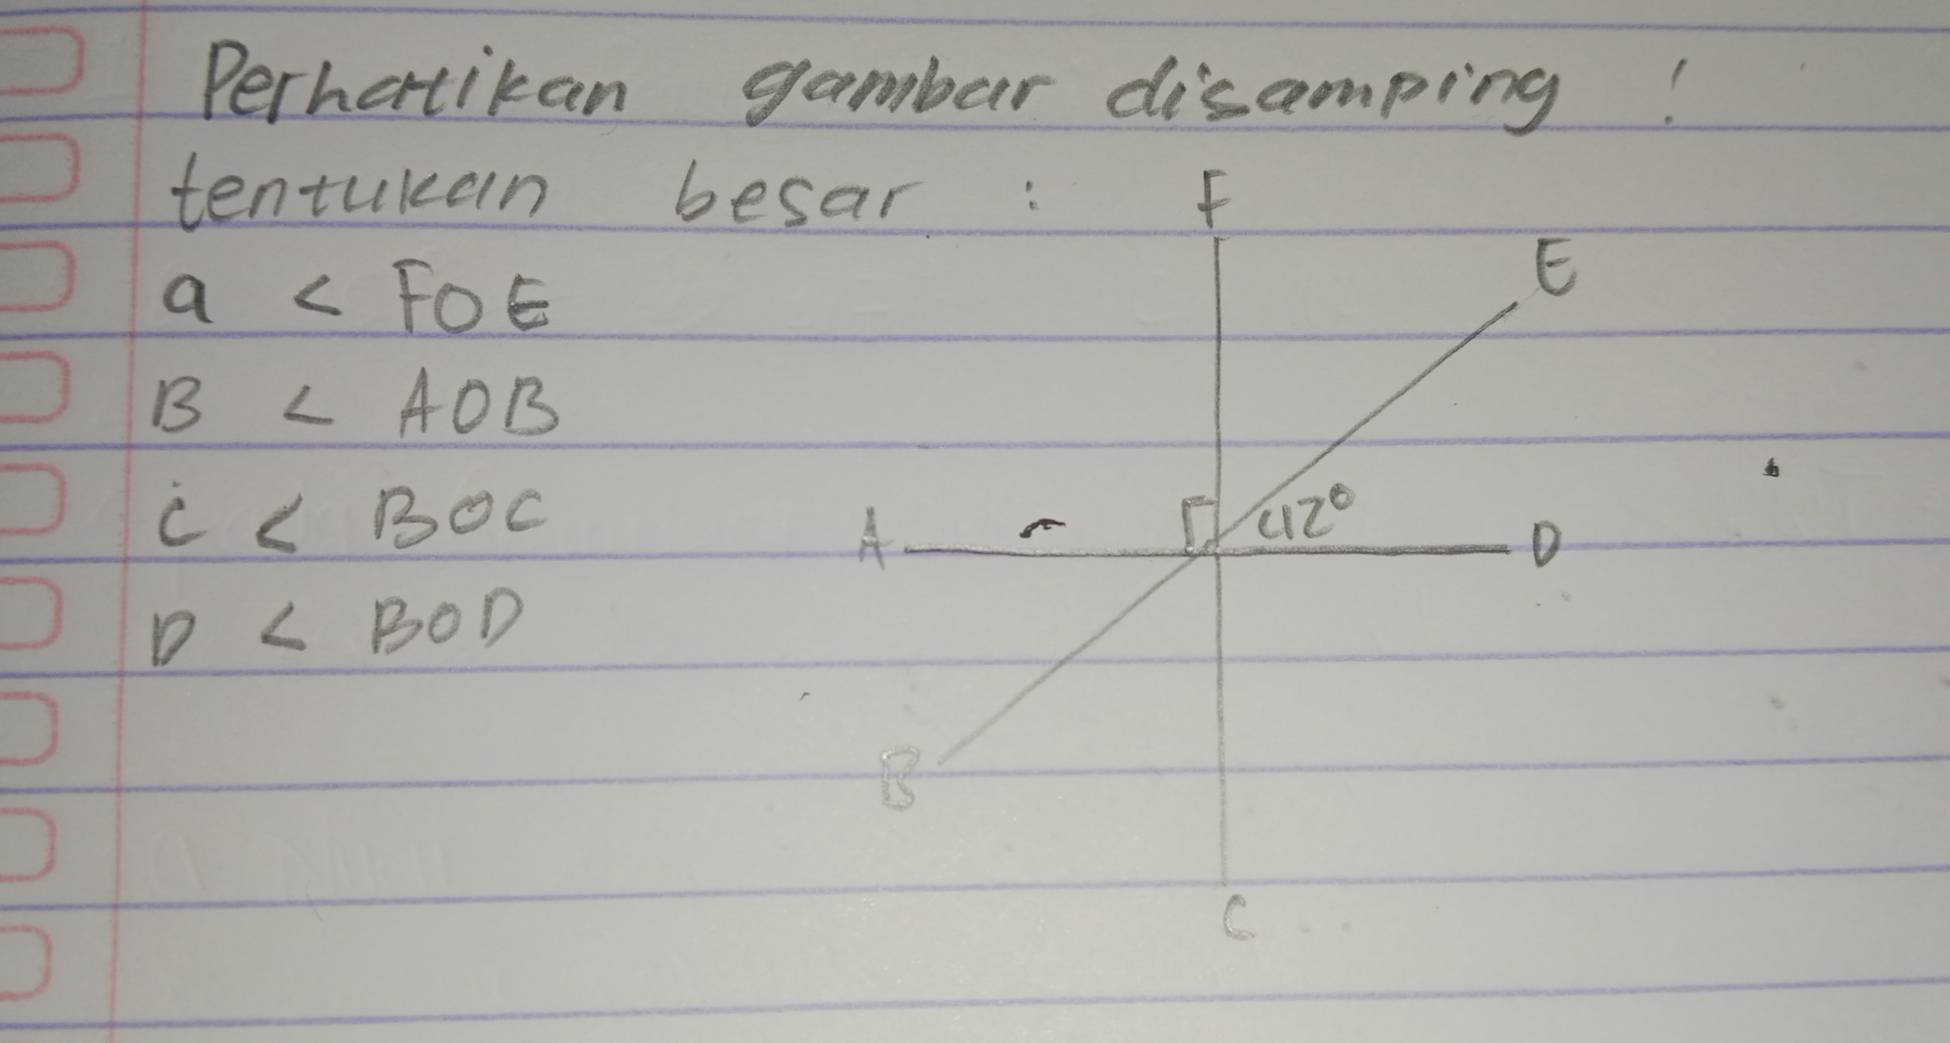 Perhatikan gambar disamping !
tentukan besar :
a < FOE
B < AOB
c < BOC
D < BOD
F
E
A
42°
D
B
C